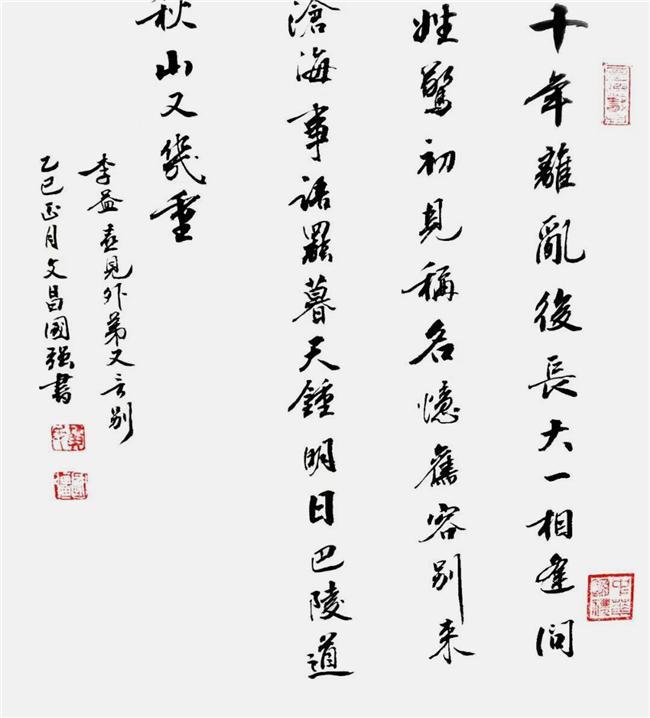 十年離亂後長大一相逢問
姓驚初見稱名憶舊容别来
滄海事語罷暮天鍾明日巴陵道
秋山又幾重
李益喜見外弟又言别
乙巳正月文昌國强書